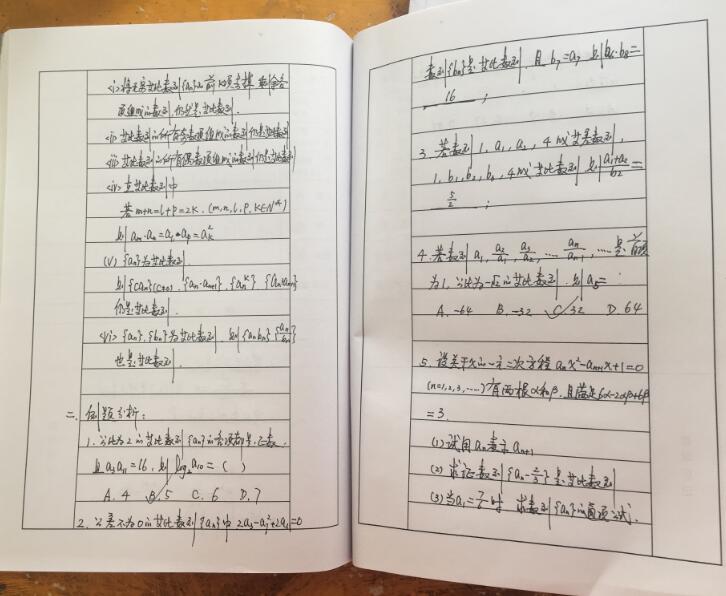 <i>将无穷等比数列{an}之前k项去掉,剩余各
项组成的数列,仍然是等比数列.
<ii>等比数列的所有奇数项组成的数列仍是等比数列
<iii>等比数列的所有偶数项组成的数列仍是等比数列
<iv>在等比数列中
若m+n=l+p=2k,(m,n,l,p,k∈N*)
则am·an=al·ap=ak²
(v) {an}为等比数列
则{can}(c≠0),{an·an+1},{an^k}
仍是等比数列.
<vi>{an},{bn}为等比数列,则{anbn}{an/bn}
也是等比数列.
二、例题分析:
1.公比为2的等比数列{an}的各项都是正数,
且a3a11=16,则log2a10=( )
A.4 B.5 C.6 D.7
2.公差不为0的等比数列{an}中 2a3-a7²+2a11=0
数列{bn}是等比数列,且b7=a7 则b6·b8=
16;
3.若数列1,a1,a2,4成等差数列,
1,b1,b2,b3,4成等比数列 则(a1+a2)/b2=
5/2;
4.若数列a1,a2/a1,a3/a2,…,an/an-1,…是首项
为1,公比为-√2的等比数列,则a5=
A.-64 B.-32 C.32 D.64
5.设关于x的一元二次方程anx²-an+1x+1=0
(n=1,2,3,……)有两根α和β,且满足6α-2αβ+6β
=3.
(1)试用an表示an+1
(2)求证数列{an-2/3}是等比数列
(3)当a1=7/6时 求数列{an}的通项公式.